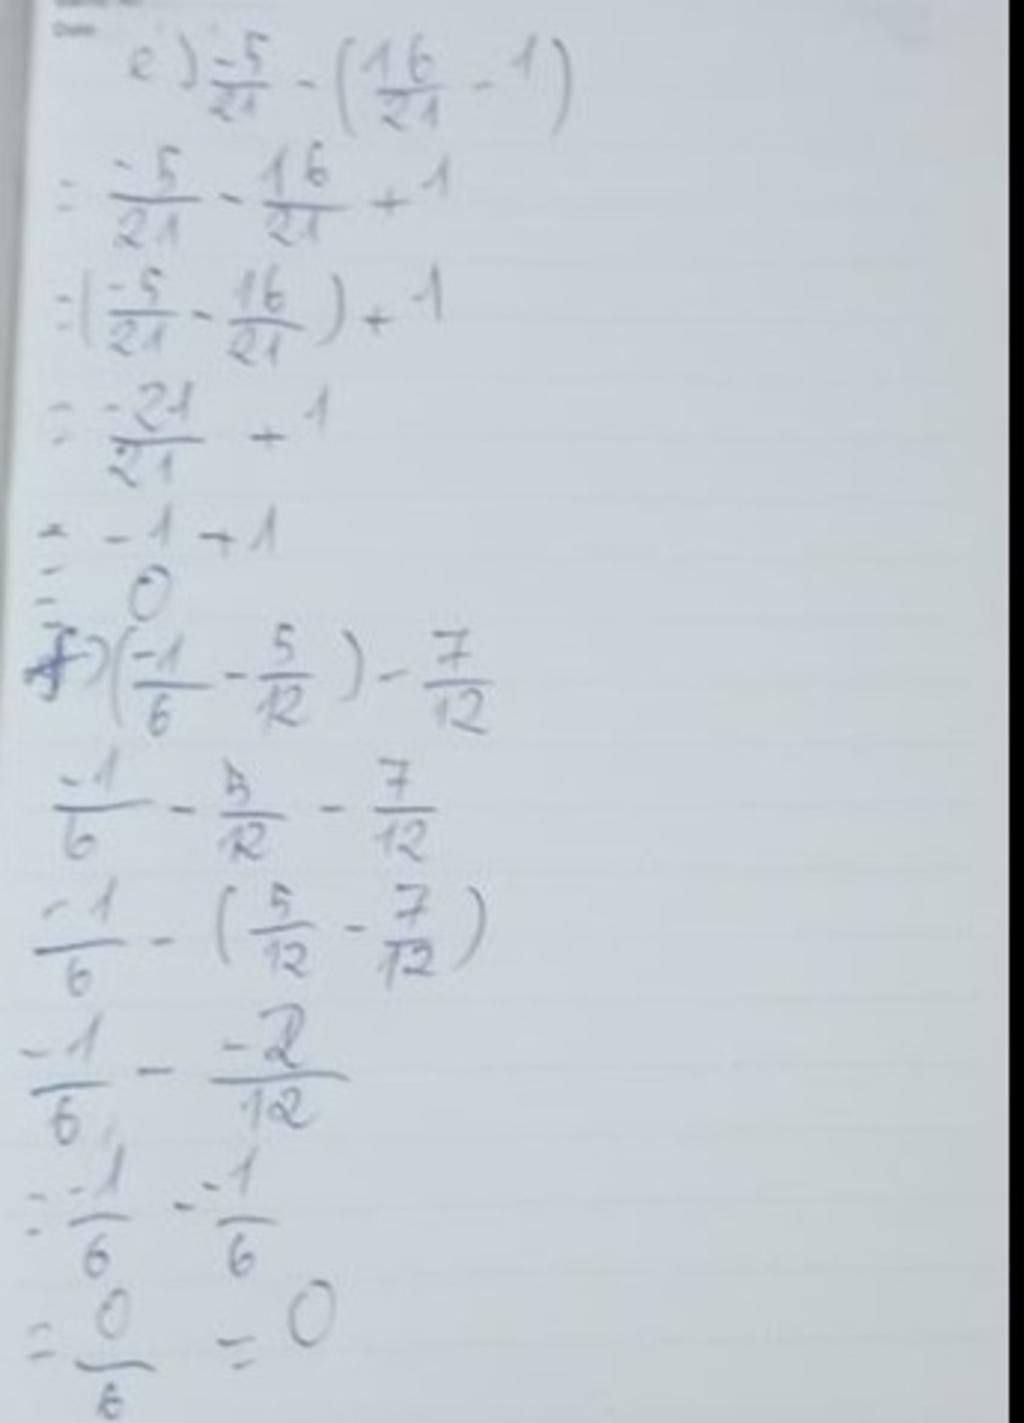 Date
e) -5/21 - (16/21 - 1)
= -5/21 - 16/21 + 1
= (-5/21 - 16/21) + 1
= -21/21 + 1
= -1 + 1
= 0
f) (-1/6 - 5/12) - 7/12
-1/6 - 5/12 - 7/12
-1/6 - (5/12 - 7/12)
-1/6 - -2/12
= -1/6 - -1/6
= 0/6 = 0